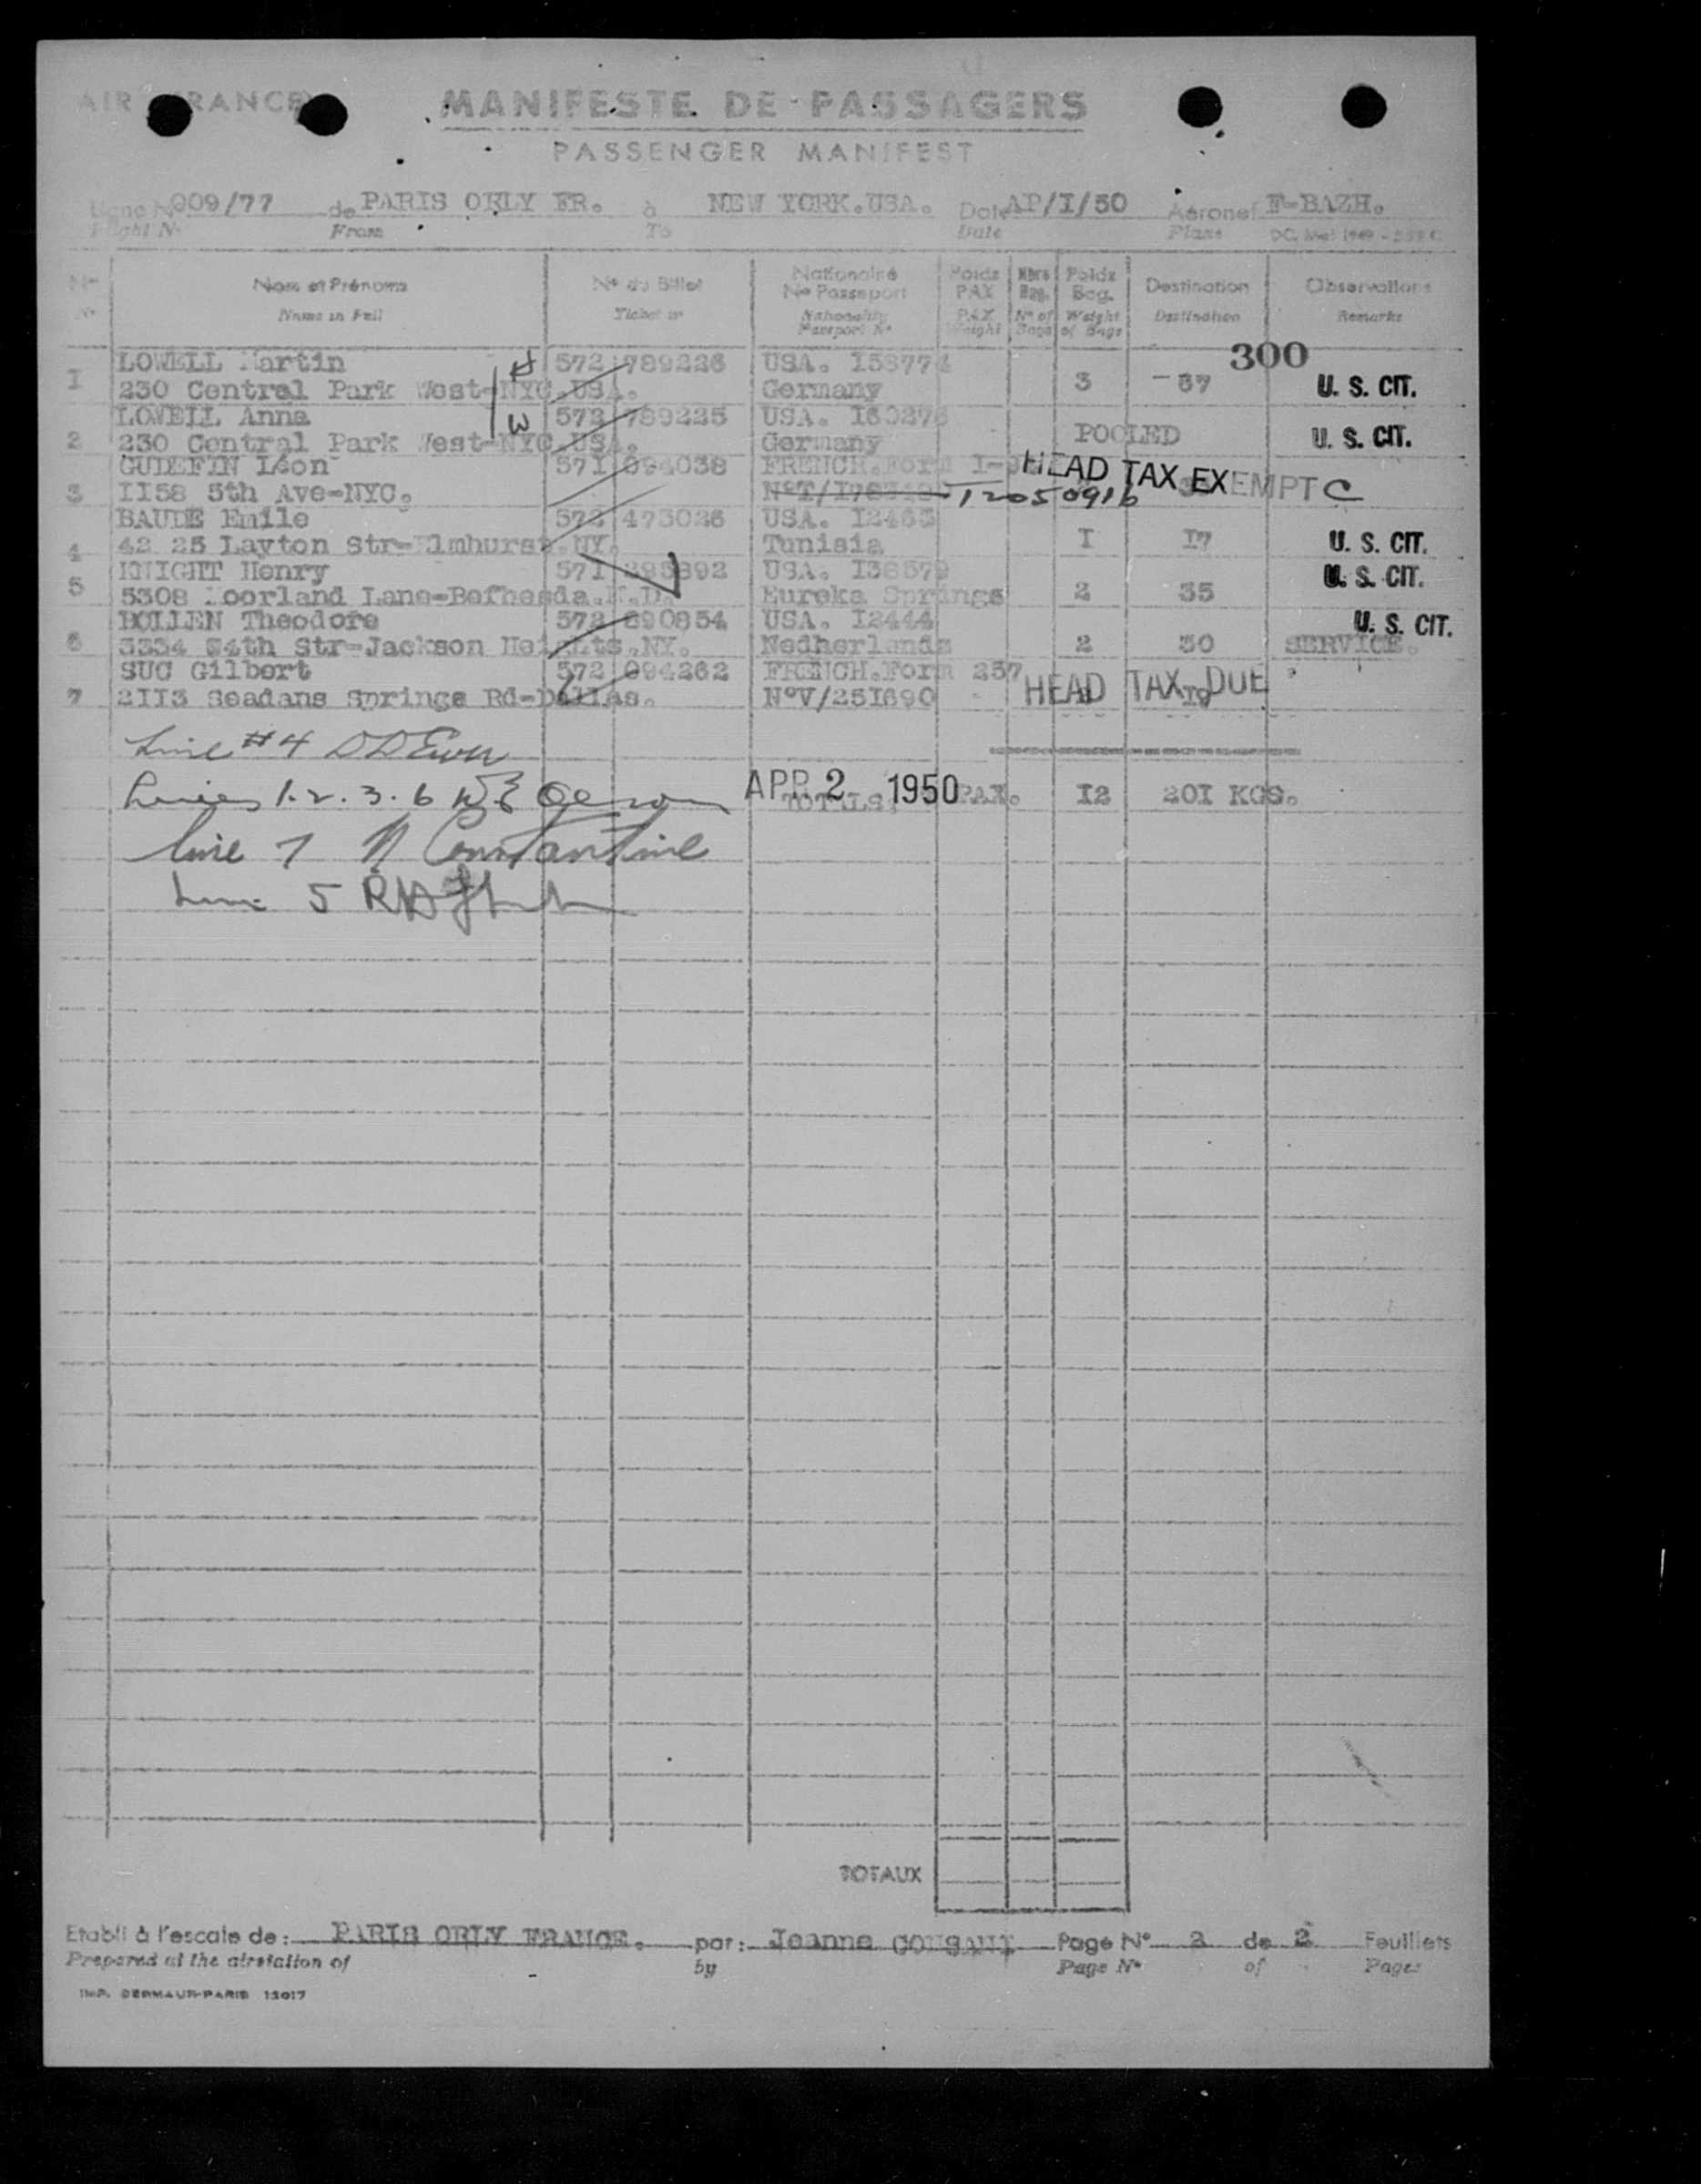 AIR FRANCE
MANIFESTE DE PASSAGERS
PASSENGER MANIFEST
Ligne N° 009/77 de PARIS ORLY FR. à NEW YORK.USA. Date AP/I/50 Aéronef F-BAZH.
Flight N° From To Date Plane
N° Nom et Prénoms N° du Billet Nationalité N° Passeport Poids PAX Nbre Bag. Poids Bag. Destination Observations
N° Name in Full Ticket n° Nationality Passport N° PAX Weight N° of Bags Weight of Bags Destination Remarks
300
LOWELL Martin H 572 789226 USA. I58774
1 230 Central Park West-NYC.USA. Germany 3 37 U. S. CIT.
LOWELL Anna W 572 789225 USA.
2 230 Central Park West-NYC.USA. Germany POOLED U. S. CIT.
GUDEFIN Léon 571 094038 FRENCH.Form HEAD TAX EXEMPT C
3 II58 5th Ave-NYC.
BAUDE Emile 572 473026 USA. I2463
4 42 25 Layton Str-Elmhurst.NY. Tunisia I I7 U. S. CIT.
KNIGHT Henry 571 USA. U. S. CIT.
5 5308 Moorland Lane-Bethesda.M.D. Eureka Springs 2 35
BOLLEN Theodore 572 USA. I2444 U. S. CIT.
6 3334 Str-Jackson Heights.NY. Nedherlands 2 30 SERVICE.
SUC Gilbert 572 094262 FRENCH.Form 257
7 2II3 Seadans Springs Rd-Dallas. N°V/25I690 HEAD TAX DUE
Line #4
Lines 1.2.3.6
APR 2 1950
TOTALS: PAX. I2 20I KGS.
Line 7 N Constantine
Line 5
TOTAUX
Etabli à l'escale de: PARIS ORLY FRANCE. par: Jeanne Page N° 2 de 2 Feuillets
Prepared at the airstation of by Page N° of Pages
IMP. DERMAUR-PARIS 13017